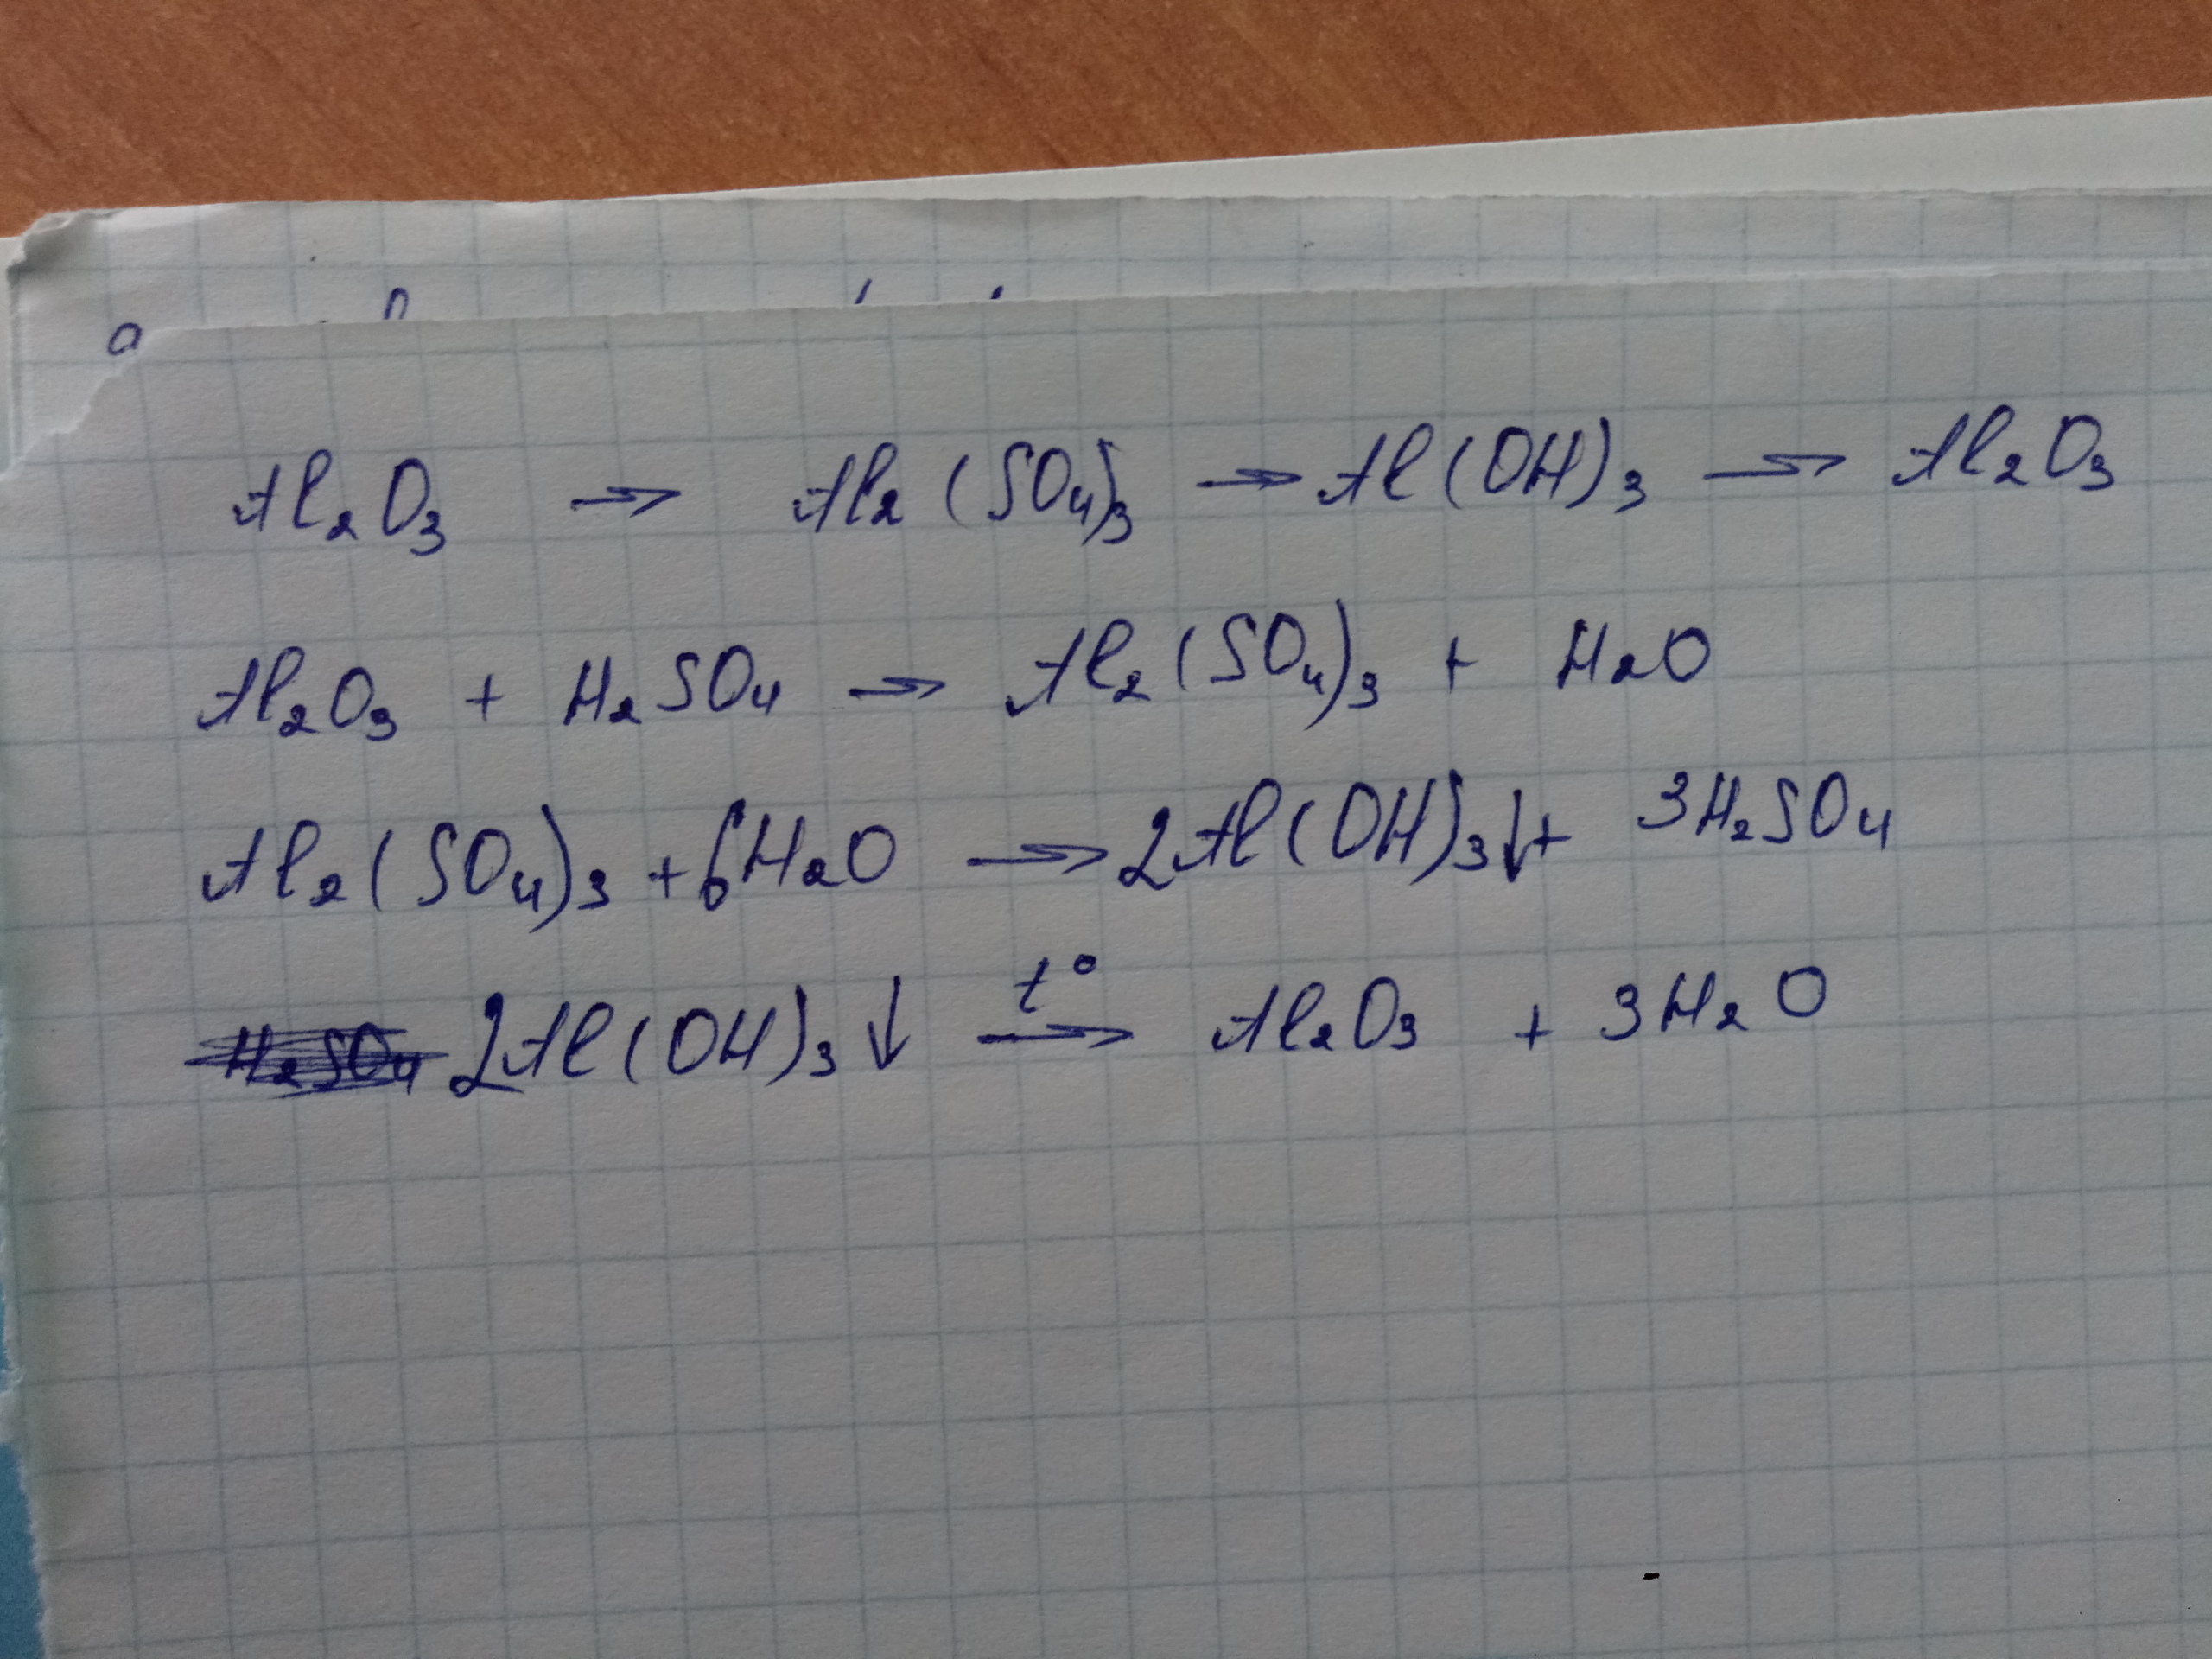 Al₂O₃ → Al₂(SO₄)₃ → Al(OH)₃ → Al₂O₃
Al₂O₃ + H₂SO₄ → Al₂(SO₄)₃ + H₂O
Al₂(SO₄)₃ + 6H₂O → 2Al(OH)₃↓ + 3H₂SO₄
H₂SO₄ 2Al(OH)₃↓ t° → Al₂O₃ + 3H₂O